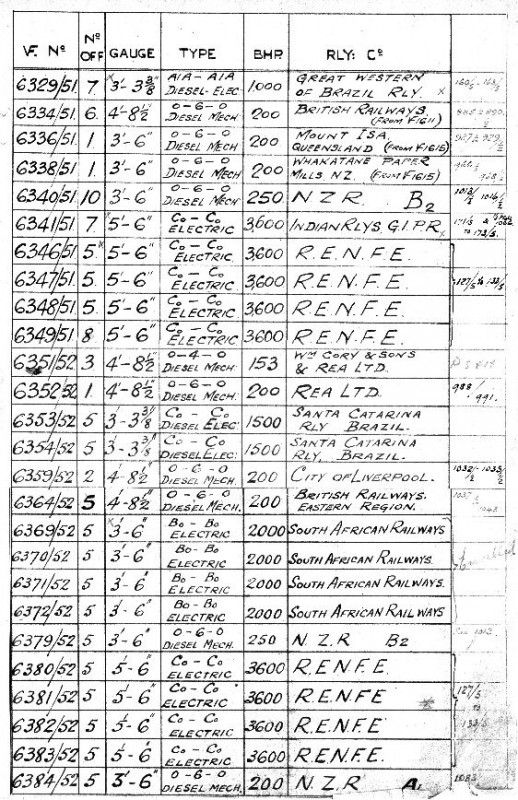 V.F. Nº | Nº OFF | GAUGE | TYPE | BHP. | RLY: Cº
6329/51. 7. 3'-3 3/8" A1A-A1A DIESEL-ELEC. 1,000 GREAT WESTERN OF BRAZIL RLY. x
6334/51. 6. 4'-8½" 0-6-0 DIESEL MECH. 200 BRITISH RAILWAYS. (FROM F1611)
6336/51 1. 3'-6" 0-6-0 DIESEL MECH 200 MOUNT ISA, QUEENSLAND (FROM F1615)
6338/51 1. 3'-6" 0-6-0 DIESEL MECH 200 WHAKATANE PAPER MILLS. N.Z. (FROM F1615)
6340/51 10 3'-6" 0-6-0 DIESEL MECH 250 N Z R. B2
6341/51 7 5'-6" Co-Co ELECTRIC 3,600 INDIAN RLYS. G.I.P.R.
6346/51 5. 5'-6" Co-Co ELECTRIC 3,600 R.E.N.F.E.
6347/51 5. 5'-6" Co-Co ELECTRIC 3,600 R.E.N.F.E.
6348/51 5. 5'-6" Co-Co ELECTRIC 3,600 R.E.N.F.E.
6349/51 8 5'-6" Co-Co ELECTRIC 3600 R.E.N.F.E.
6351/52 3 4'-8½" 0-4-0 DIESEL MECH. 153 WM CORY & SONS & REA LTD.
6352/52 1. 4'-8½" 0-6-0 DIESEL MECH. 200 REA LTD. 988/991.
6353/52 5 3'-3 3/8" Co-Co DIESEL ELEC. 1500 SANTA CATARINA RLY BRAZIL.
6354/52 5 3'-3 3/8" Co-Co DIESEL ELEC. 1500 SANTA CATARINA RLY, BRAZIL.
6359/52 2 4'-8½" 0-6-0 DIESEL MECH. 200 CITY OF LIVERPOOL.
6364/52 5 4'-8½" 0-6-0 DIESEL MECH. 200 BRITISH RAILWAYS. EASTERN REGION.
6369/52 5 3'-6" Bo-Bo ELECTRIC 2000 SOUTH AFRICAN RAILWAYS
6370/52 5 3'-6" Bo-Bo ELECTRIC 2000 SOUTH AFRICAN RAILWAYS.
6371/52 5 3'-6" Bo-Bo ELECTRIC 2000 SOUTH AFRICAN RAILWAYS.
6372/52 5 3'-6" Bo-Bo ELECTRIC 2000 SOUTH AFRICAN RAILWAYS
6379/52 5 3'-6" 0-6-0 DIESEL MECH. 250 N.Z.R B2
6380/52 5 5'-6" Co-Co ELECTRIC 3600 R.E.N.F.E.
6381/52 5 5'-6" Co-Co ELECTRIC 3600 R.E.N.F.E
6382/52 5 5'-6" Co-Co ELECTRIC 3600 R.E.N.F.E
6383/52 5 5'-6" Co-Co ELECTRIC 3600 R.E.N.F.E.
6384/52 5 3'-6" 0-6-0 DIESEL MECH. 200 N.Z.R A. 1083